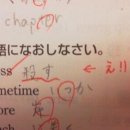 chapter
語になおしなさい。
ess 殺す え!!
metime いつか
ore 岸